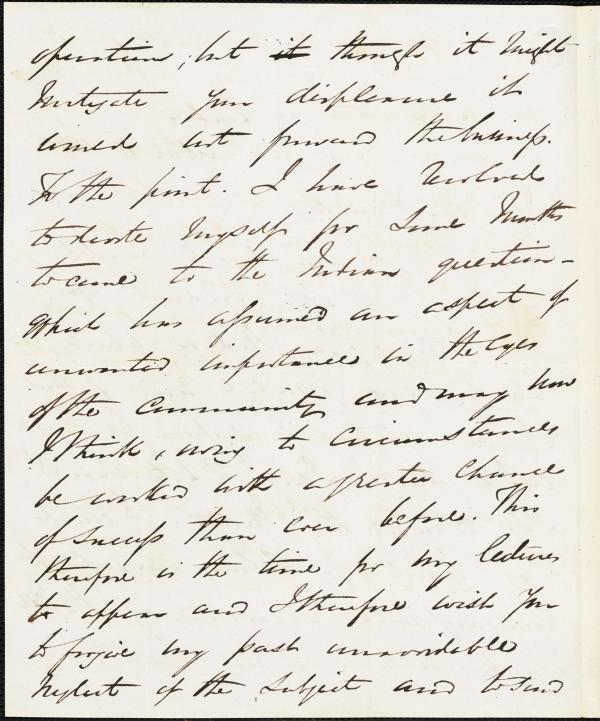 operation, but it though it might
mitigate your displeasure it
would not forward the business.
To the point. I have resolved
to devote myself for some months
to come to the Indian question –
Which has assumed an aspect of
unwonted importance in the eyes
of the community and may now
I think, owing to circumstances
be worked with a greater chance
of success than ever before. This
therefore is the time for my lectures
to appear and I therefore wish you
to forgive my past unavoidable
neglect of the subject and to send